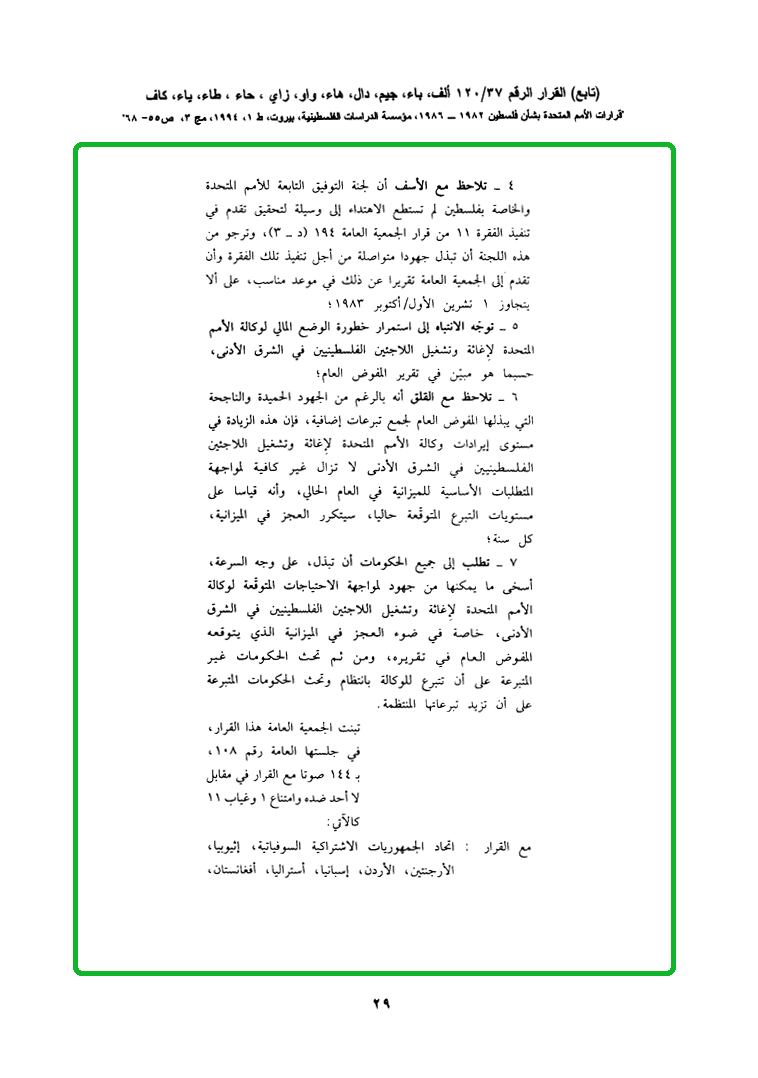 (تابع) القرار الرقم ١٢٠/٣٧ ألف، باء، جيم، دال، هاء، واو، زاي ، حاء ، طاء، ياء، كاف
"قرارات الأمم المتحدة بشأن فلسطين ١٩٨٢ ــ ١٩٨٦، مؤسسة الدراسات الفلسطينية، بيروت، ط ١، ١٩٩٤، مج ٣، ص٥٥- ٦٨"
٤ ــ تلاحظ مع الأسف أن لجنة التوفيق التابعة للأمم المتحدة
والخاصة بفلسطين لم تستطع الاهتداء إلى وسيلة لتحقيق تقدم في
تنفيذ الفقرة ١١ من قرار الجمعية العامة ١٩٤ (د ــ ٣)، وترجو من
هذه اللجنة أن تبذل جهودا متواصلة من أجل تنفيذ تلك الفقرة وأن
تقدم إلى الجمعية العامة تقريرا عن ذلك في موعد مناسب، على ألا
يتجاوز ١ تشرين الأول/أكتوبر ١٩٨٣؛
٥ ــ توجّه الانتباه إلى استمرار خطورة الوضع المالي لوكالة الأمم
المتحدة لإغاثة وتشغيل اللاجئين الفلسطينيين في الشرق الأدنى،
حسبما هو مبيّن في تقرير المفوض العام؛
٦ ــ تلاحظ مع القلق أنه بالرغم من الجهود الحميدة والناجحة
التي يبذلها المفوض العام لجمع تبرعات إضافية، فإن هذه الزيادة في
مستوى إيرادات وكالة الأمم المتحدة لإغاثة وتشغيل اللاجئين
الفلسطينيين في الشرق الأدنى لا تزال غير كافية لمواجهة
المتطلبات الأساسية للميزانية في العام الحالي، وأنه قياسا على
مستويات التبرع المتوقّعة حاليا، سيتكرر العجز في الميزانية،
كل سنة؛
٧ ــ تطلب إلى جميع الحكومات أن تبذل، على وجه السرعة،
أسخى ما يمكنها من جهود لمواجهة الاحتياجات المتوقّعة لوكالة
الأمم المتحدة لإغاثة وتشغيل اللاجئين الفلسطينيين في الشرق
الأدنى، خاصة في ضوء العجز في الميزانية الذي يتوقعه
المفوض العام في تقريره، ومن ثم تحث الحكومات غير
المتبرعة على أن تتبرع للوكالة بانتظام وتحث الحكومات المتبرعة
على أن تزيد تبرعاتها المنتظمة.
تبنت الجمعية العامة هذا القرار،
في جلستها العامة رقم ١٠٨،
بـ ١٤٤ صوتا مع القرار في مقابل
لا أحد ضده وامتناع ١ وغياب ١١
كالآتي:
مع القرار : اتحاد الجمهوريات الاشتراكية السوفياتية، إثيوبيا،
الأرجنتين، الأردن، إسبانيا، أستراليا، أفغانستان،
٢٩